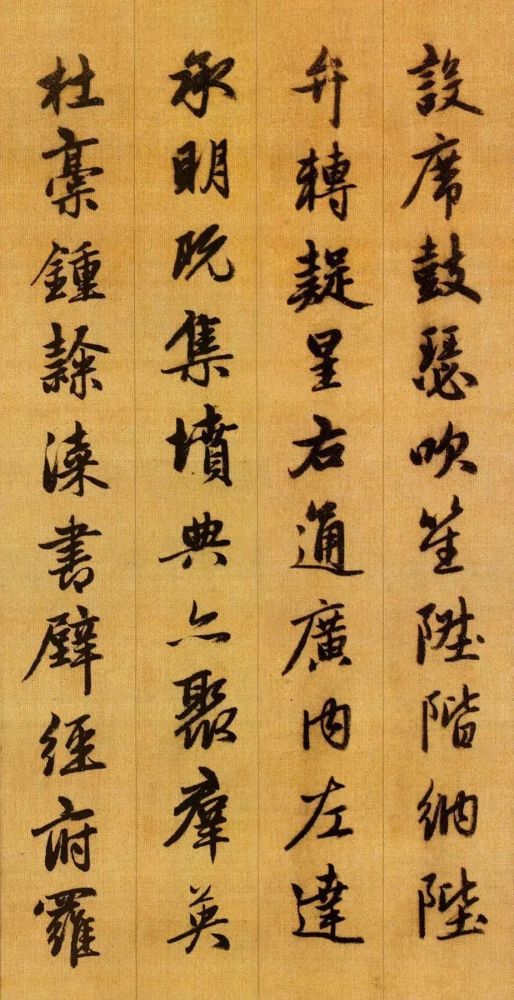 設席鼓瑟吹笙陞階納陛
弁轉疑星右通廣內左達
承明既集墳典亦聚羣英
杜稾鍾隸漆書壁經府羅